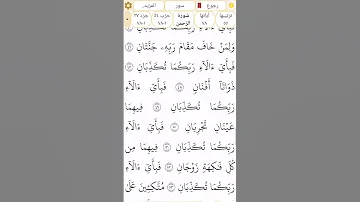 رجوع سور المزيد
ترتيبها آياتها سُورَة حزب ٥٤ جزء ٢٧
٥٥ ٧٨ الرَّحْمٰن ١-٧٨ ١-٧٨
رَبِّكُمَا تُكَذِّبَانِ
وَلِمَنْ خَافَ مَقَامَ رَبِّهِۦ جَنَّتَانِ
فَبِأَيِّ ءَالَآءِ رَبِّكُمَا تُكَذِّبَانِ
ذَوَاتَآ أَفْنَانٍ ٤٨ فَبِأَيِّ ءَالَآءِ
رَبِّكُمَا تُكَذِّبَانِ فِيهِمَا
عَيْنَانِ تَجْرِيَانِ ٥٠ فَبِأَيِّ ءَالَآءِ
رَبِّكُمَا تُكَذِّبَانِ فِيهِمَا مِن
كُلِّ فَٰكِهَةٍ زَوْجَانِ ٥٢ فَبِأَيِّ ءَالَآءِ
رَبِّكُمَا تُكَذِّبَانِ ٥٣ مُتَّكِـِٔينَ عَلَىٰ